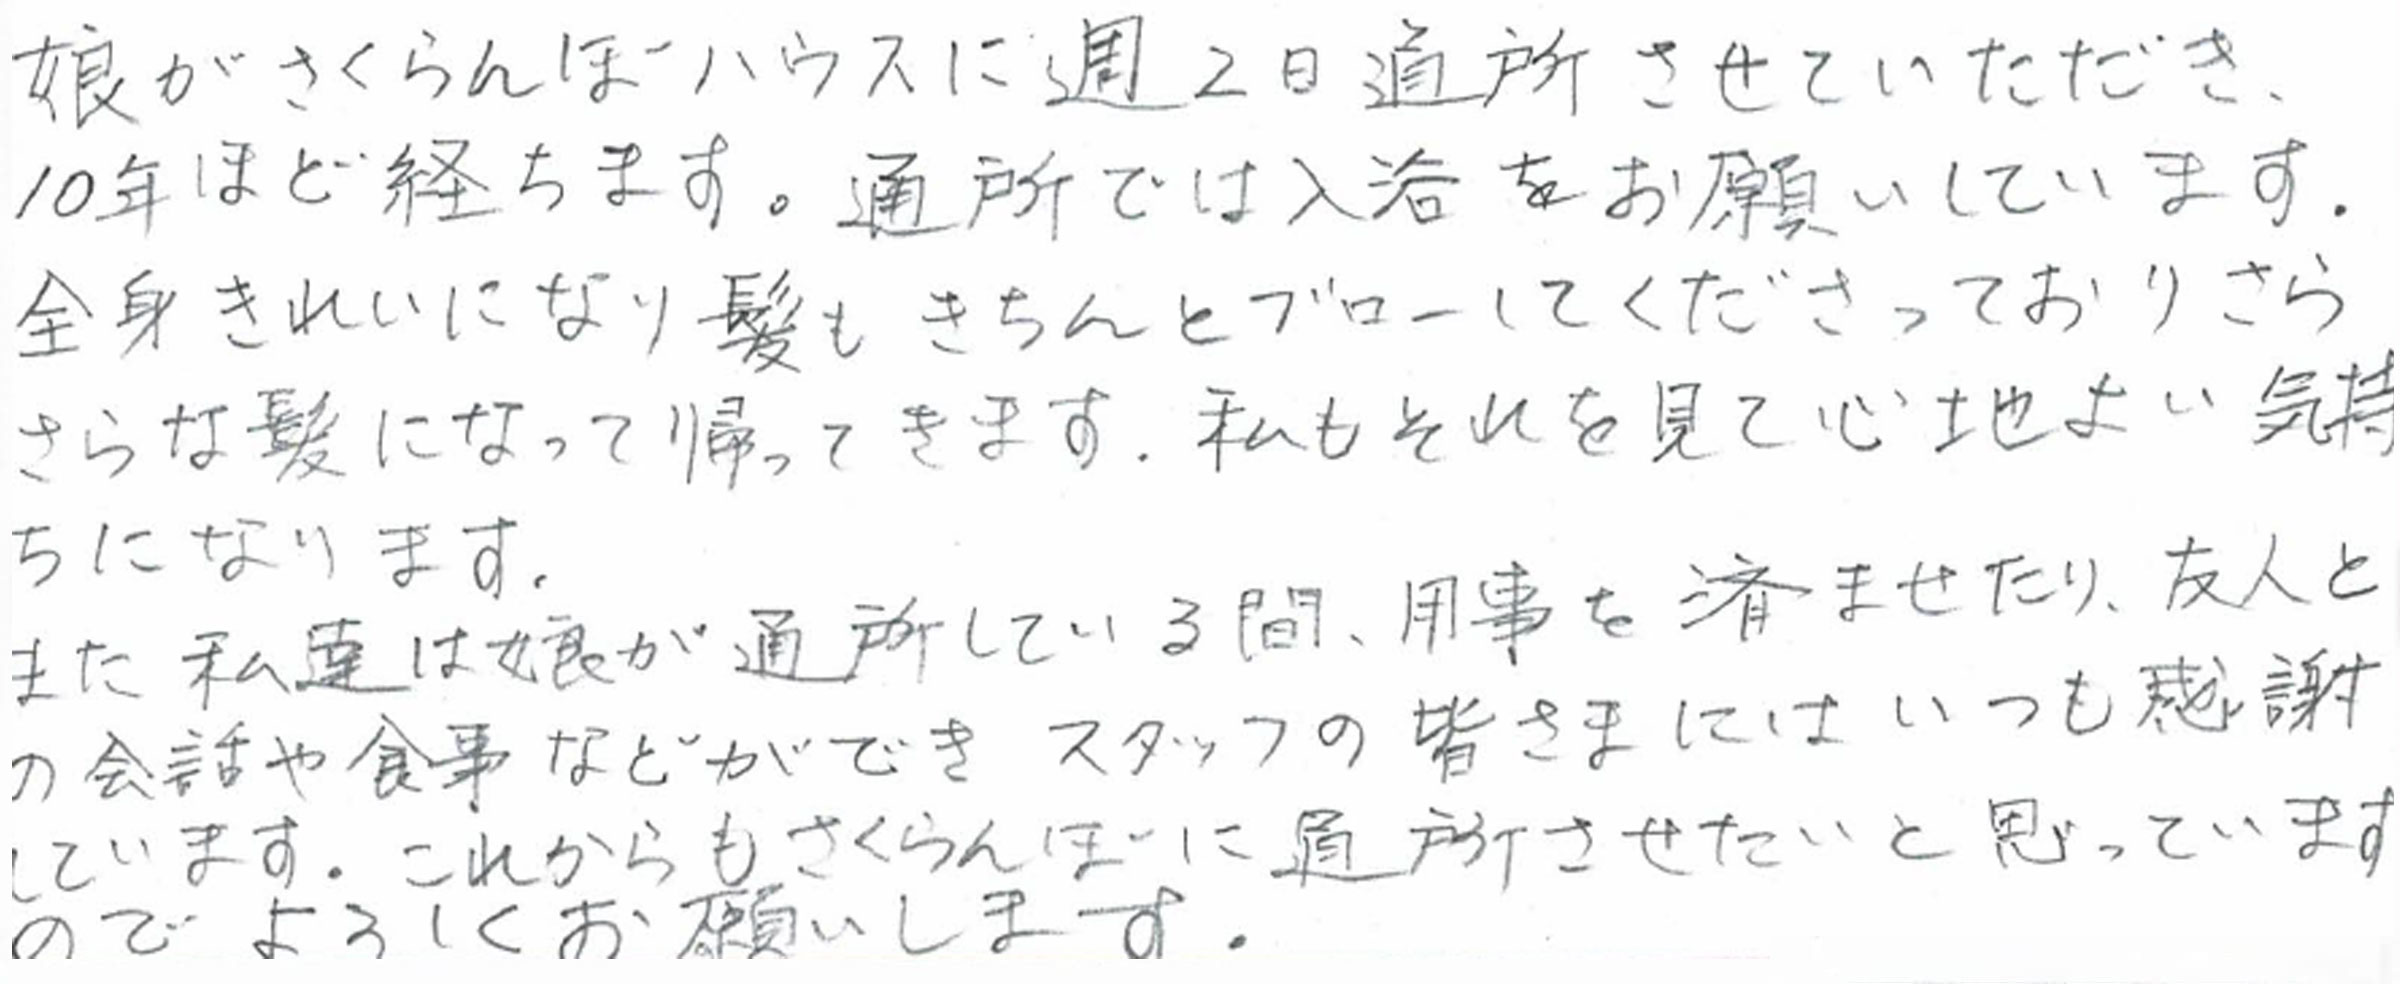 娘がさくらんぼハウスに週2日通所させていただき、
10年ほど経ちます。通所では入浴をお願いしています.
全身きれいになり髪もきちんとブローしてくださっておりさら
さらな髪になって帰ってきます.私もそれを見て心地よい気持
ちになります.
また私達は娘が通所している間、用事を済ませたり、友人と
の会話や食事などができ スタッフの皆さまにはいつも感謝
しています.これからもさくらんぼに通所させたいと思っています
のでよろしくお願いします.